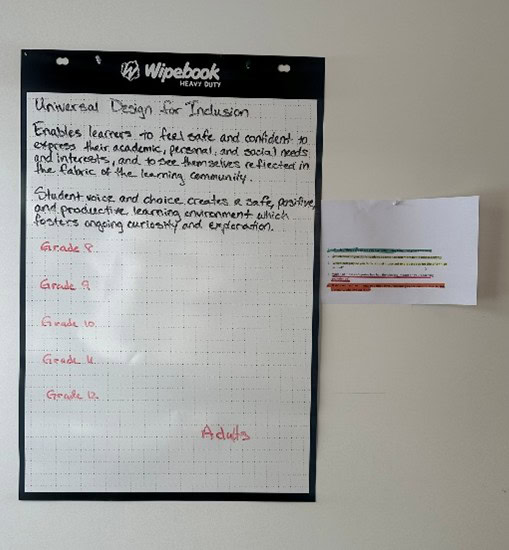 Wipebook
HEAVY DUTY
Universal Design for Inclusion
Enables learners to feel safe and confident to
express their academic, personal, and social needs
and interests, and to see themselves reflected in
the fabric of the learning community.
Student voice and choice creates a safe, positive,
and productive learning environment which
fosters ongoing curiosity and exploration.
Grade 8
Grade 9
Grade 10
Grade 11
Grade 12
Adults